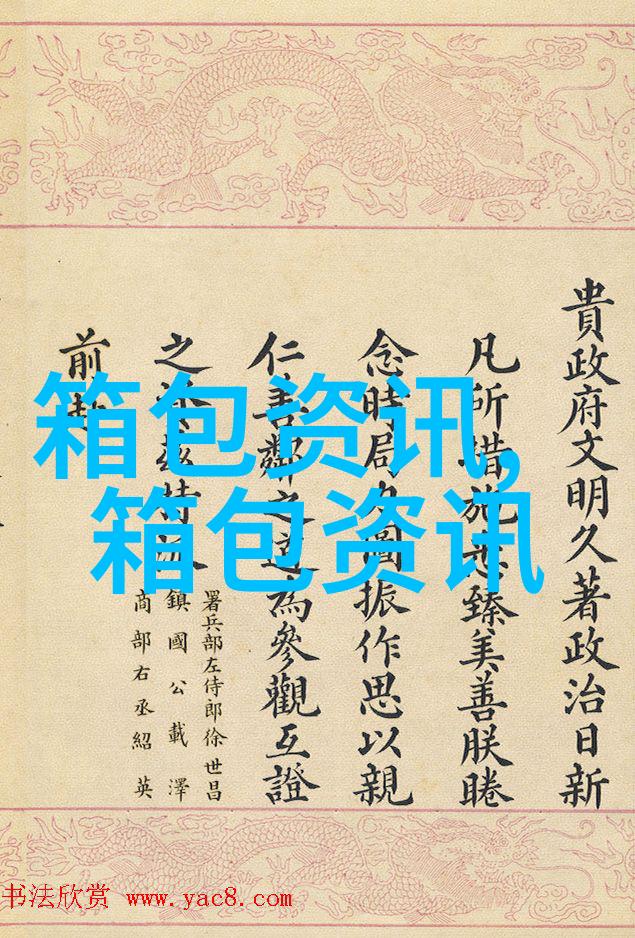 貴政府文明久著政治日新
凡所措施悉臻美善朕睠
念時局力圖振作思以親
仁善鄰之道為參觀互證
之茲特派
署兵部左侍郎徐世昌
鎮國公載澤
商部右丞紹英
前赴
箱包资讯,
箱包资讯
书法欣赏 www.yac8.com